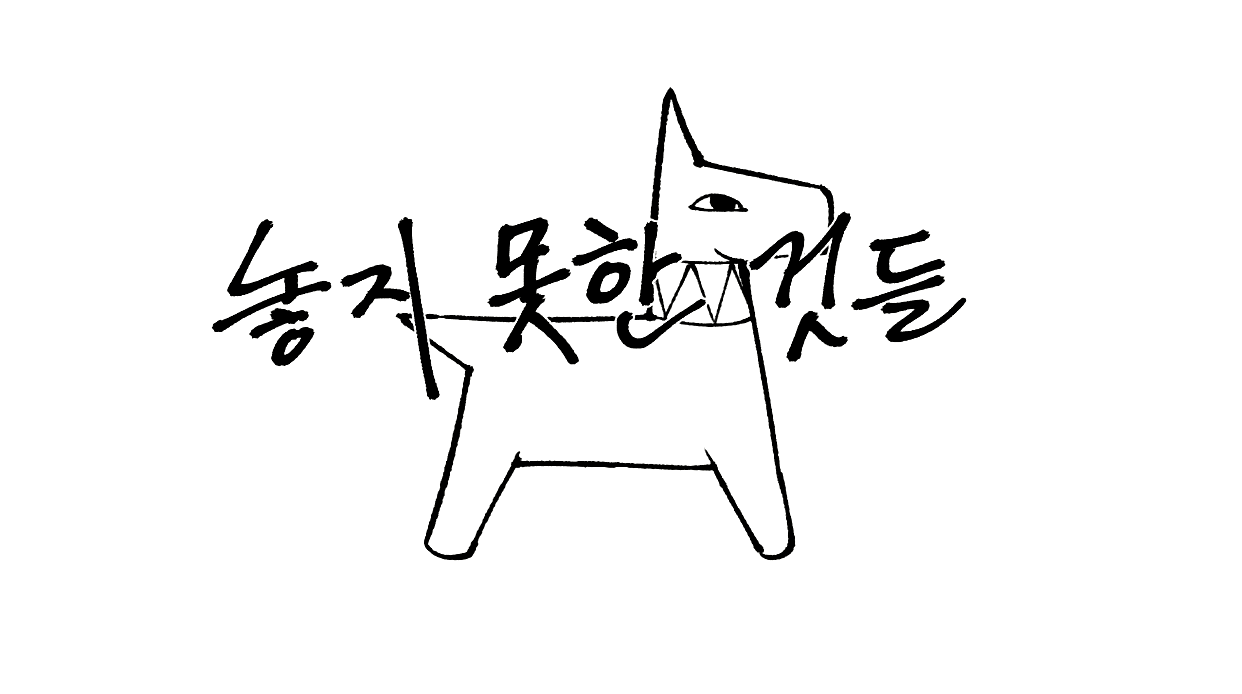 놓지 못한 것들